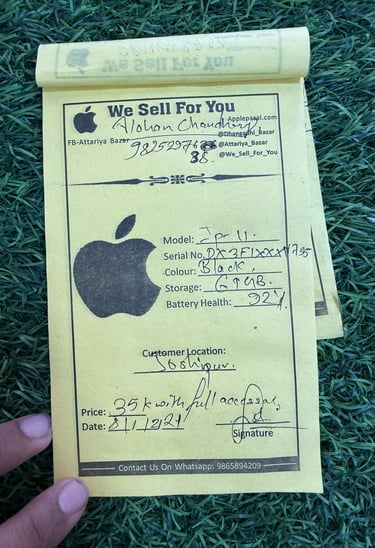 We Sell For You
We Sell For You
Applepasal.com
Chaudhary
@Dhangadhi_Bazar
FB-Attariya Bazar
@Attariya_Bazar
@We_Sell_For_You
Model: Ipr 11.
Serial No.
Colour: Black.
Storage: 64GB.
Battery Health: 92%
Customer Location:
Joshipur.
Price: 35k with full accessories
Date:
Signature
Contact Us On Whatsapp: 9865894209